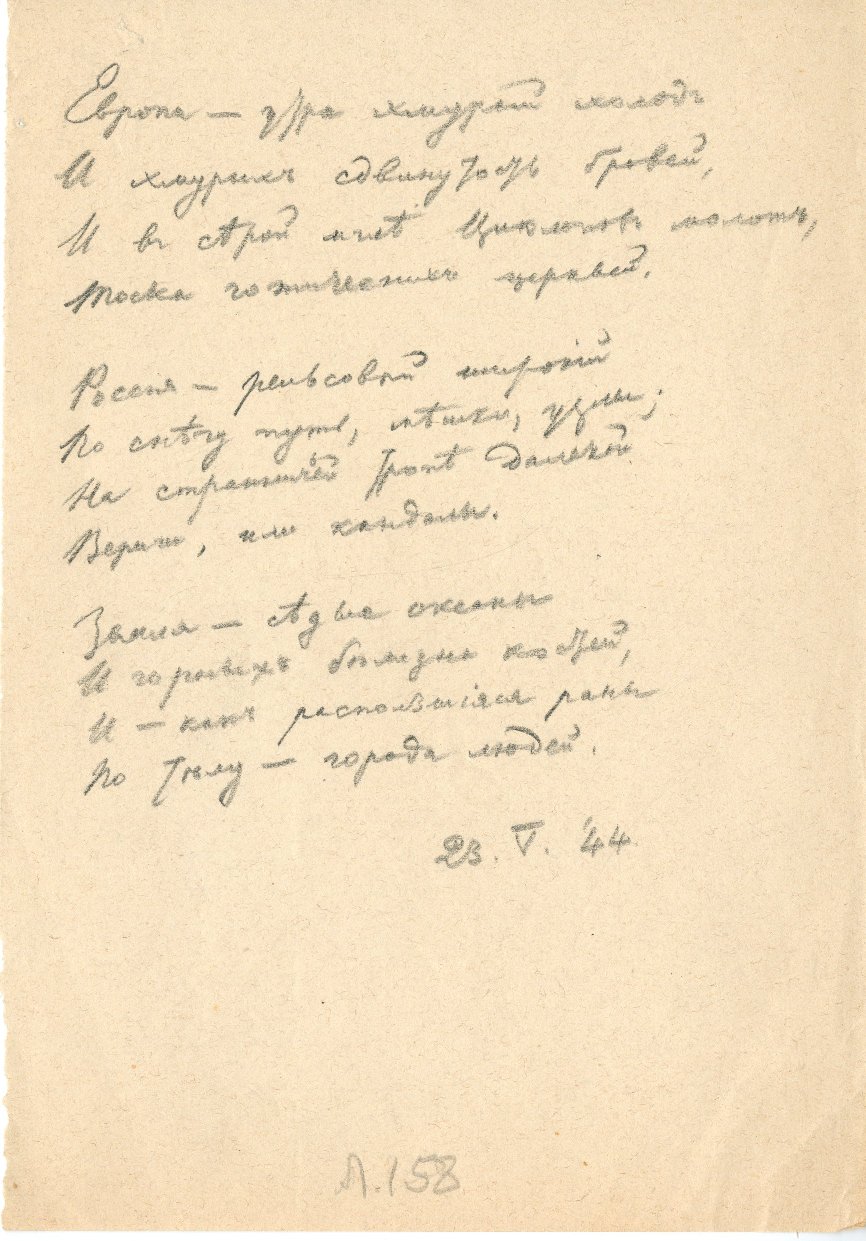 Европа — утра хмурый холодъ
И хмурыхъ сдвинутость бровей,
И въ сѣрой мглѣ Циклоповъ молотъ,
Тоска готическихъ церквей.
Россія — рельсовый широкій
По снѣгу путь, мѣшки, узлы;
На странничьей тропѣ далекой
Вериги, или кандалы.
Земля — сѣдые океаны
И горныхъ бѣлизна костей,
И — какъ расползшіяся раны
По тѣлу — города людей.
23. V. '44
Л.158